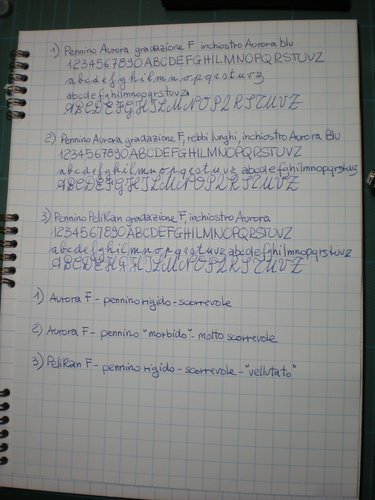 1) Pennino Aurora gradazione F inchiostro Aurora blu
1234567890ABCDEFGHILMNOPQRSTUVZ
abcdefghilmnopqrstuvz
abcdefghilmnopqrstuvz
ABCDEFGHILMNOPQRSTUVZ
2) Pennino Aurora gradazione F, rebbi lunghi, inchiostro Aurora Blu
1234567890ABCDEFGHILMNOPQRSTUVZ
abcdefghilmnopqrstuvz abcdefghilmnopqrstuvz
ABCDEFGHILMNOPQRSTUVZ
3) Pennino Pelikan gradazione F, inchiostro Aurora
1234567890ABCDEFGHILMNOPQRSTUVZ
abcdefghilmnopqrstuvz abcdefghilmnopqrstuvz
ABCDEFGHILMNOPQRSTUVZ
1) Aurora F - pennino rigido - scorrevole
2) Aurora F - pennino "morbido" - molto scorrevole
3) Pelikan F - pennino rigido - scorrevole - "vellutato"